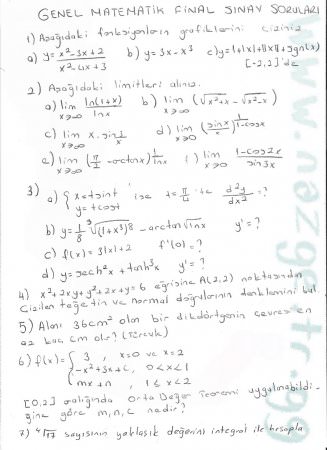 GENEL MATEMATİK FİNAL SINAV SORULARI
1) Aşağıdaki fonksiyonların grafiklerini çiziniz.
a) y = (x²-3x+2)/(x²-4x+3) b) y=3x-x³ c) y=1+|x|+||x||+sgn(x)
[-2,2]'de
2) Aşağıdaki limitleri alınız.
a) lim x→∞ ln(1+x)/lnx b) lim x→∞ (√(x²+x) - √(x²-x))
c) lim x→∞ x.sin 1/x d) lim x→0 (sinx/x)^(1/(1-cosx))
e) lim x→∞ (π/2 - arctanx)^(1/lnx) f) lim x→0 (1-cos2x)/(sin3x)
3) a) { x=tsint y=tcost ise t=π/4 'te d²y/dx² =?
b) y = 1/8 ∛((1+x³)⁸) - arctan√lnx y'=?
c) f(x)=3|x|+2 f'(0)=?
d) y=sech²x + tanh³x y'=?
4) x²+2xy+y²+2x+y=6 eğrisine A(2,2) noktasından
Çizilen teğetin ve normal doğrularının denklemini bul
5) Alanı 36cm² olan bir dikdörtgenin çevresi en
az kaç cm olur? (Türevle)
6) f(x)= { 3 , x=0 ve x=2
-x²+3x+c, 0<x<1
mx+n , 1≤x<2
[0,2] aralığında Orta Değer Teoremi uygulanabildi-
ğine göre m,n,c nedir?
7) ⁴√17 sayısının yaklaşık değerini integral ile hesapla
www.nazge